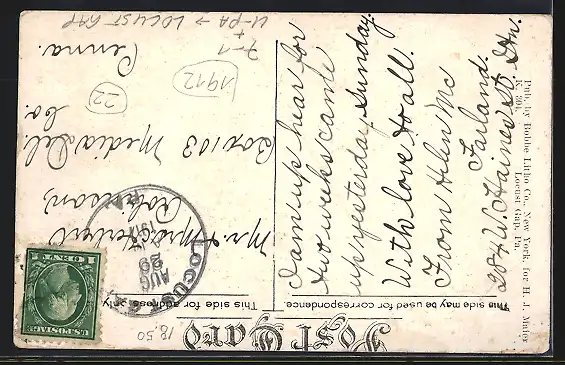 Post Card
This side may be used for correspondence.
This side for address only.
I am up hear for
two weeks came
up yesterday, Sunday.
With love to all.
From Helen Mc
Farland.
204 W. Haines St. Gtn.
Mr. & Mrs.
Robinson,
Box 103 Media Del.
Co.
Penna.
LOCUST
AUG
29
PA
U.S. POSTAGE
1 CENT 1
Pub. by Robbe Litho Co., New York, for H. J. Maier
Locust Gap, Pa.
U-PA → LOCUST GAP
7-1
+
1912
22
18.50